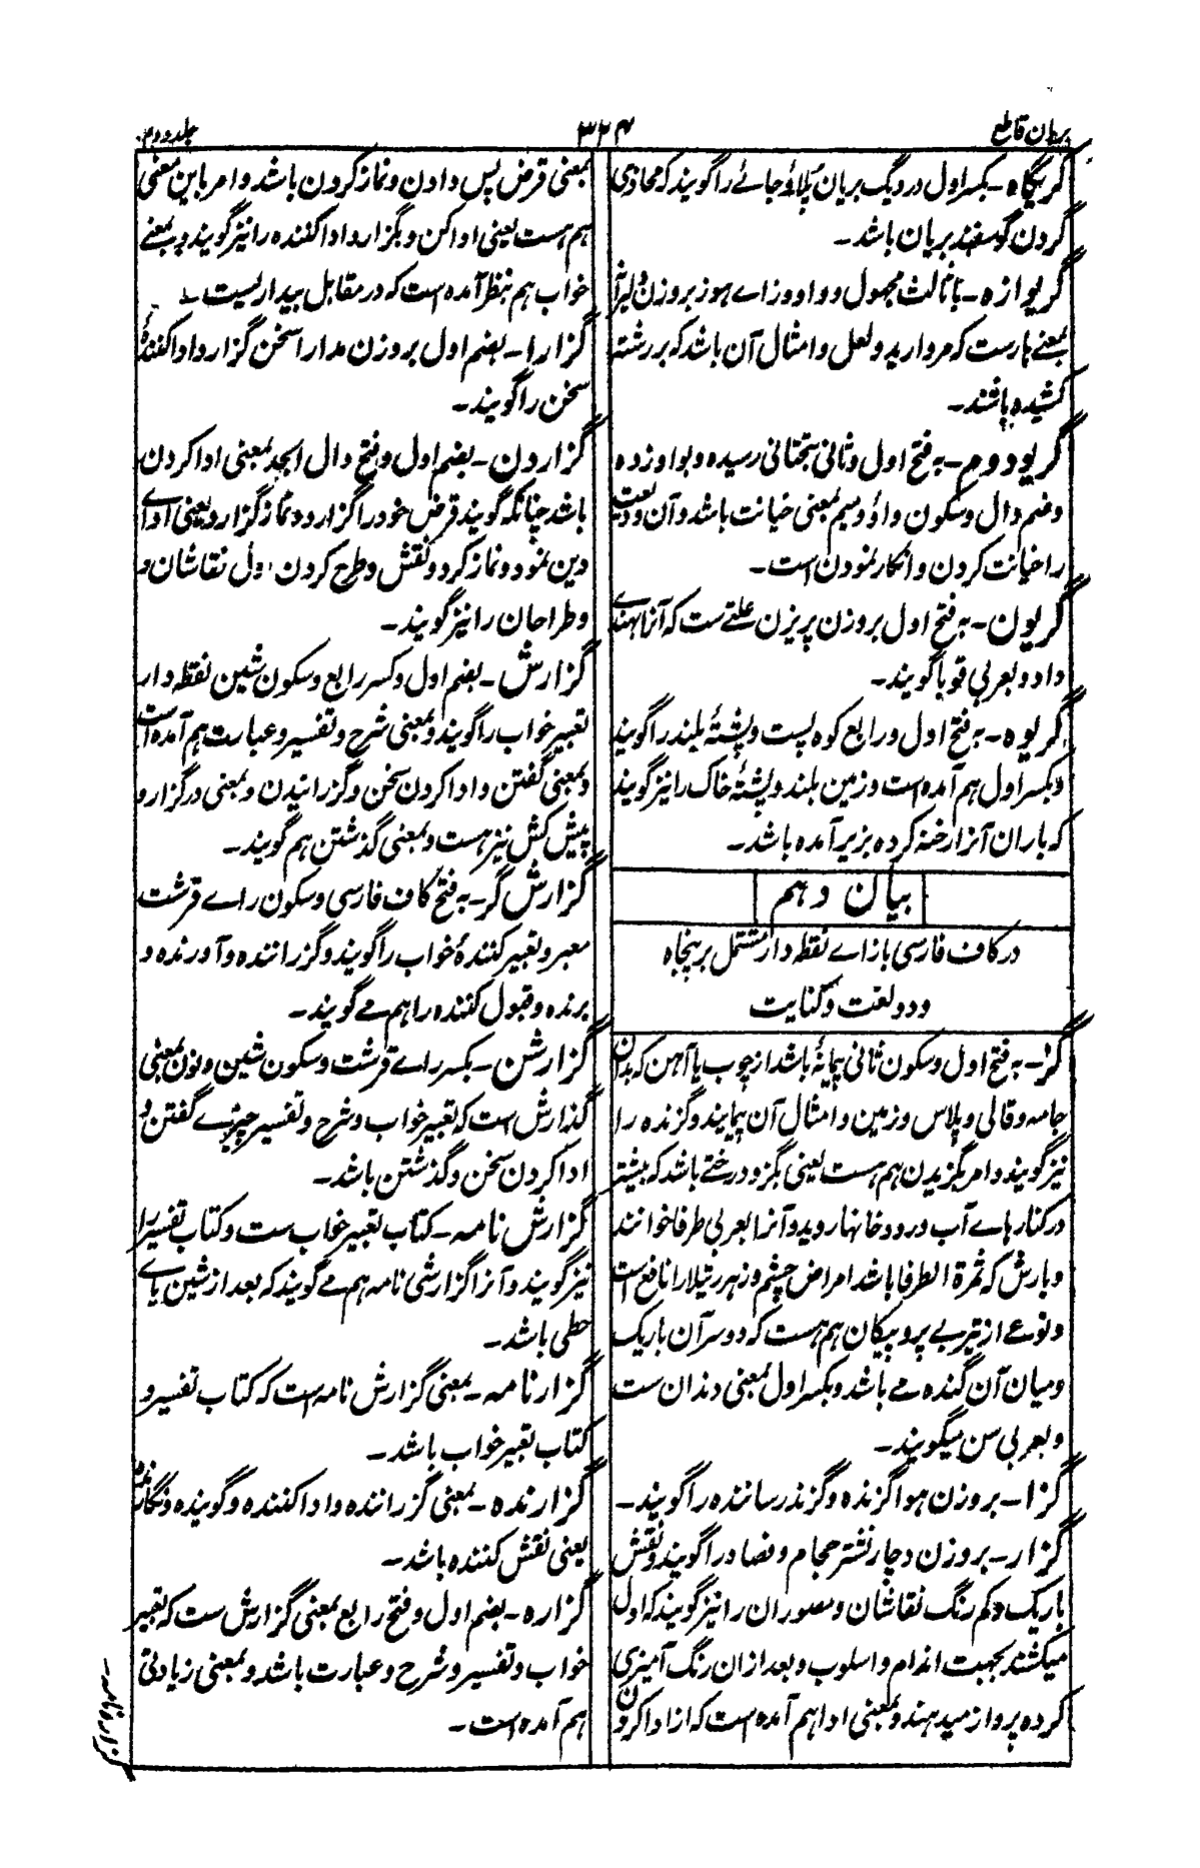 برهان قاطع
۳۲۴
جلد دوم
گریگاه - بکسر اول در دیگ بریان پلاؤ جائے را گویند که محاذی
گردن گوسفند بریان باشد -
گریوازه - با ثالث مجهول و واو و زاے هوز بروزن
بمعنے هارست که مروارید و لعل و امثال آن باشد که بر رشته
کشیده باشند -
گریودوم - به فتح اول و ثانی بتحتانی رسیده و بواو زده
و ضم دال و سکون واؤ و میم بمعنی خیانت باشد و آن ودیعت
را خیانت کردن و انکار نمودن است -
گریون - به فتح اول بروزن پریزن علتے ست که آنرا بهندے
داد و بعربی قوبا گویند -
گریوه - به فتح اول و رابع کوه پست و پشتهٔ بلند را گویند
و بکسر اول هم آمده است و زمین بلند و پشتهٔ خاک را نیز گویند
که باران آنرا رخنه کرده بزیر آمده باشد -
بیان دهم
در کاف فارسی با زاے نقطه دار مشتمل بر پنجاه
و دو لغت و کنایت
گز - به فتح اول و سکون ثانی پیمانهٔ باشد از چوب یا آهن که بدان
جامه و قالی و پلاس و زمین و امثال آن پیمایند و گزنده را
نیز گویند و امر بگزیدن هم هست یعنی بگز و درختے باشد که بیشتر
در کنارهاے آب و رودخانها روید و آنرا بعربی طرفا خوانند
و بارش که ثمرة الطرفا باشد امراض چشم و زهر رتیلا را نافع است
و نوعے از تیر بے پر و پیکان هم هست که دو سر آن باریک
و میان آن گنده مے باشد و بکسر اول بمعنی دندان ست
و بعربی سن میگویند -
گزا - بروزن هوا گزنده و گزند رساننده را گویند -
گزار - بروزن دچار نشتر حجام و فصاد را گویند و نقش
باریک و کم رنگ نقاشان و مصوران را نیز گویند که اول
میکشند بجهت اندام و اسلوب و بعد ازان رنگ آمیزی
کرده پرواز میدهند و بمعنی ادا هم آمده است که از ادا کردن
بمعنی قرض پس دادن و نماز کردن باشد و امر باین معنی
هم هست یعنی ادا کن و بگزار و ادا کننده را نیز گویند و بمعنے
خواب هم بنظر آمده است که در مقابل بیداریست -
گزارا - بضم اول بروزن مدارا سخن گزار و ادا کنندهٔ
سخن را گویند -
گزاردن - بضم اول و فتح دال ابجد بمعنی ادا کردن
باشد چنانکه گویند قرض خود را گزارد و نماز گزارد یعنی اداے
دین نمود و نماز کرد و نقش و طرح کردن اول نقاشان و
و طراحان را نیز گویند -
گزارش - بضم اول و کسر رابع و سکون شین نقطه دار
تعبیر خواب را گویند و بمعنی شرح و تفسیر و عبارت هم آمده است
و بمعنی گفتن و ادا کردن سخن و گزرانیدن و بمعنی درگزار و
پیش کش نیز هست و بمعنی گذشتن هم گویند -
گزارش گر - به فتح کاف فارسی و سکون راے قرشت
معبر و تعبیر کنندهٔ خواب را گویند و گزراننده و آورنده و
برنده و قبول کننده را هم مے گویند -
گزارشن - بکسر راے قرشت و سکون شین و نون بمعنی
گذارش ست که تعبیر خواب و شرح و تفسیر چیزے گفتن و
ادا کردن سخن و گذشتن باشد -
گزارش نامه - کتاب تعبیر خواب ست و کتاب تفسیر را
نیز گویند و آنرا گزارشی نامه هم مے گویند که بعد از شین یاے
حطی باشد -
گزارنامه - بمعنی گزارش نامه است که کتاب تفسیر و
کتاب تعبیر خواب باشد -
گزارنده - بمعنی گزراننده و ادا کننده و گوینده و نگارنده
یعنی نقش کننده باشد -
گزاره - بضم اول و فتح رابع بمعنی گزارش ست که تعبیر
خواب و تفسیر و شرح و عبارت باشد و بمعنی زیادتی
هم آمده است -